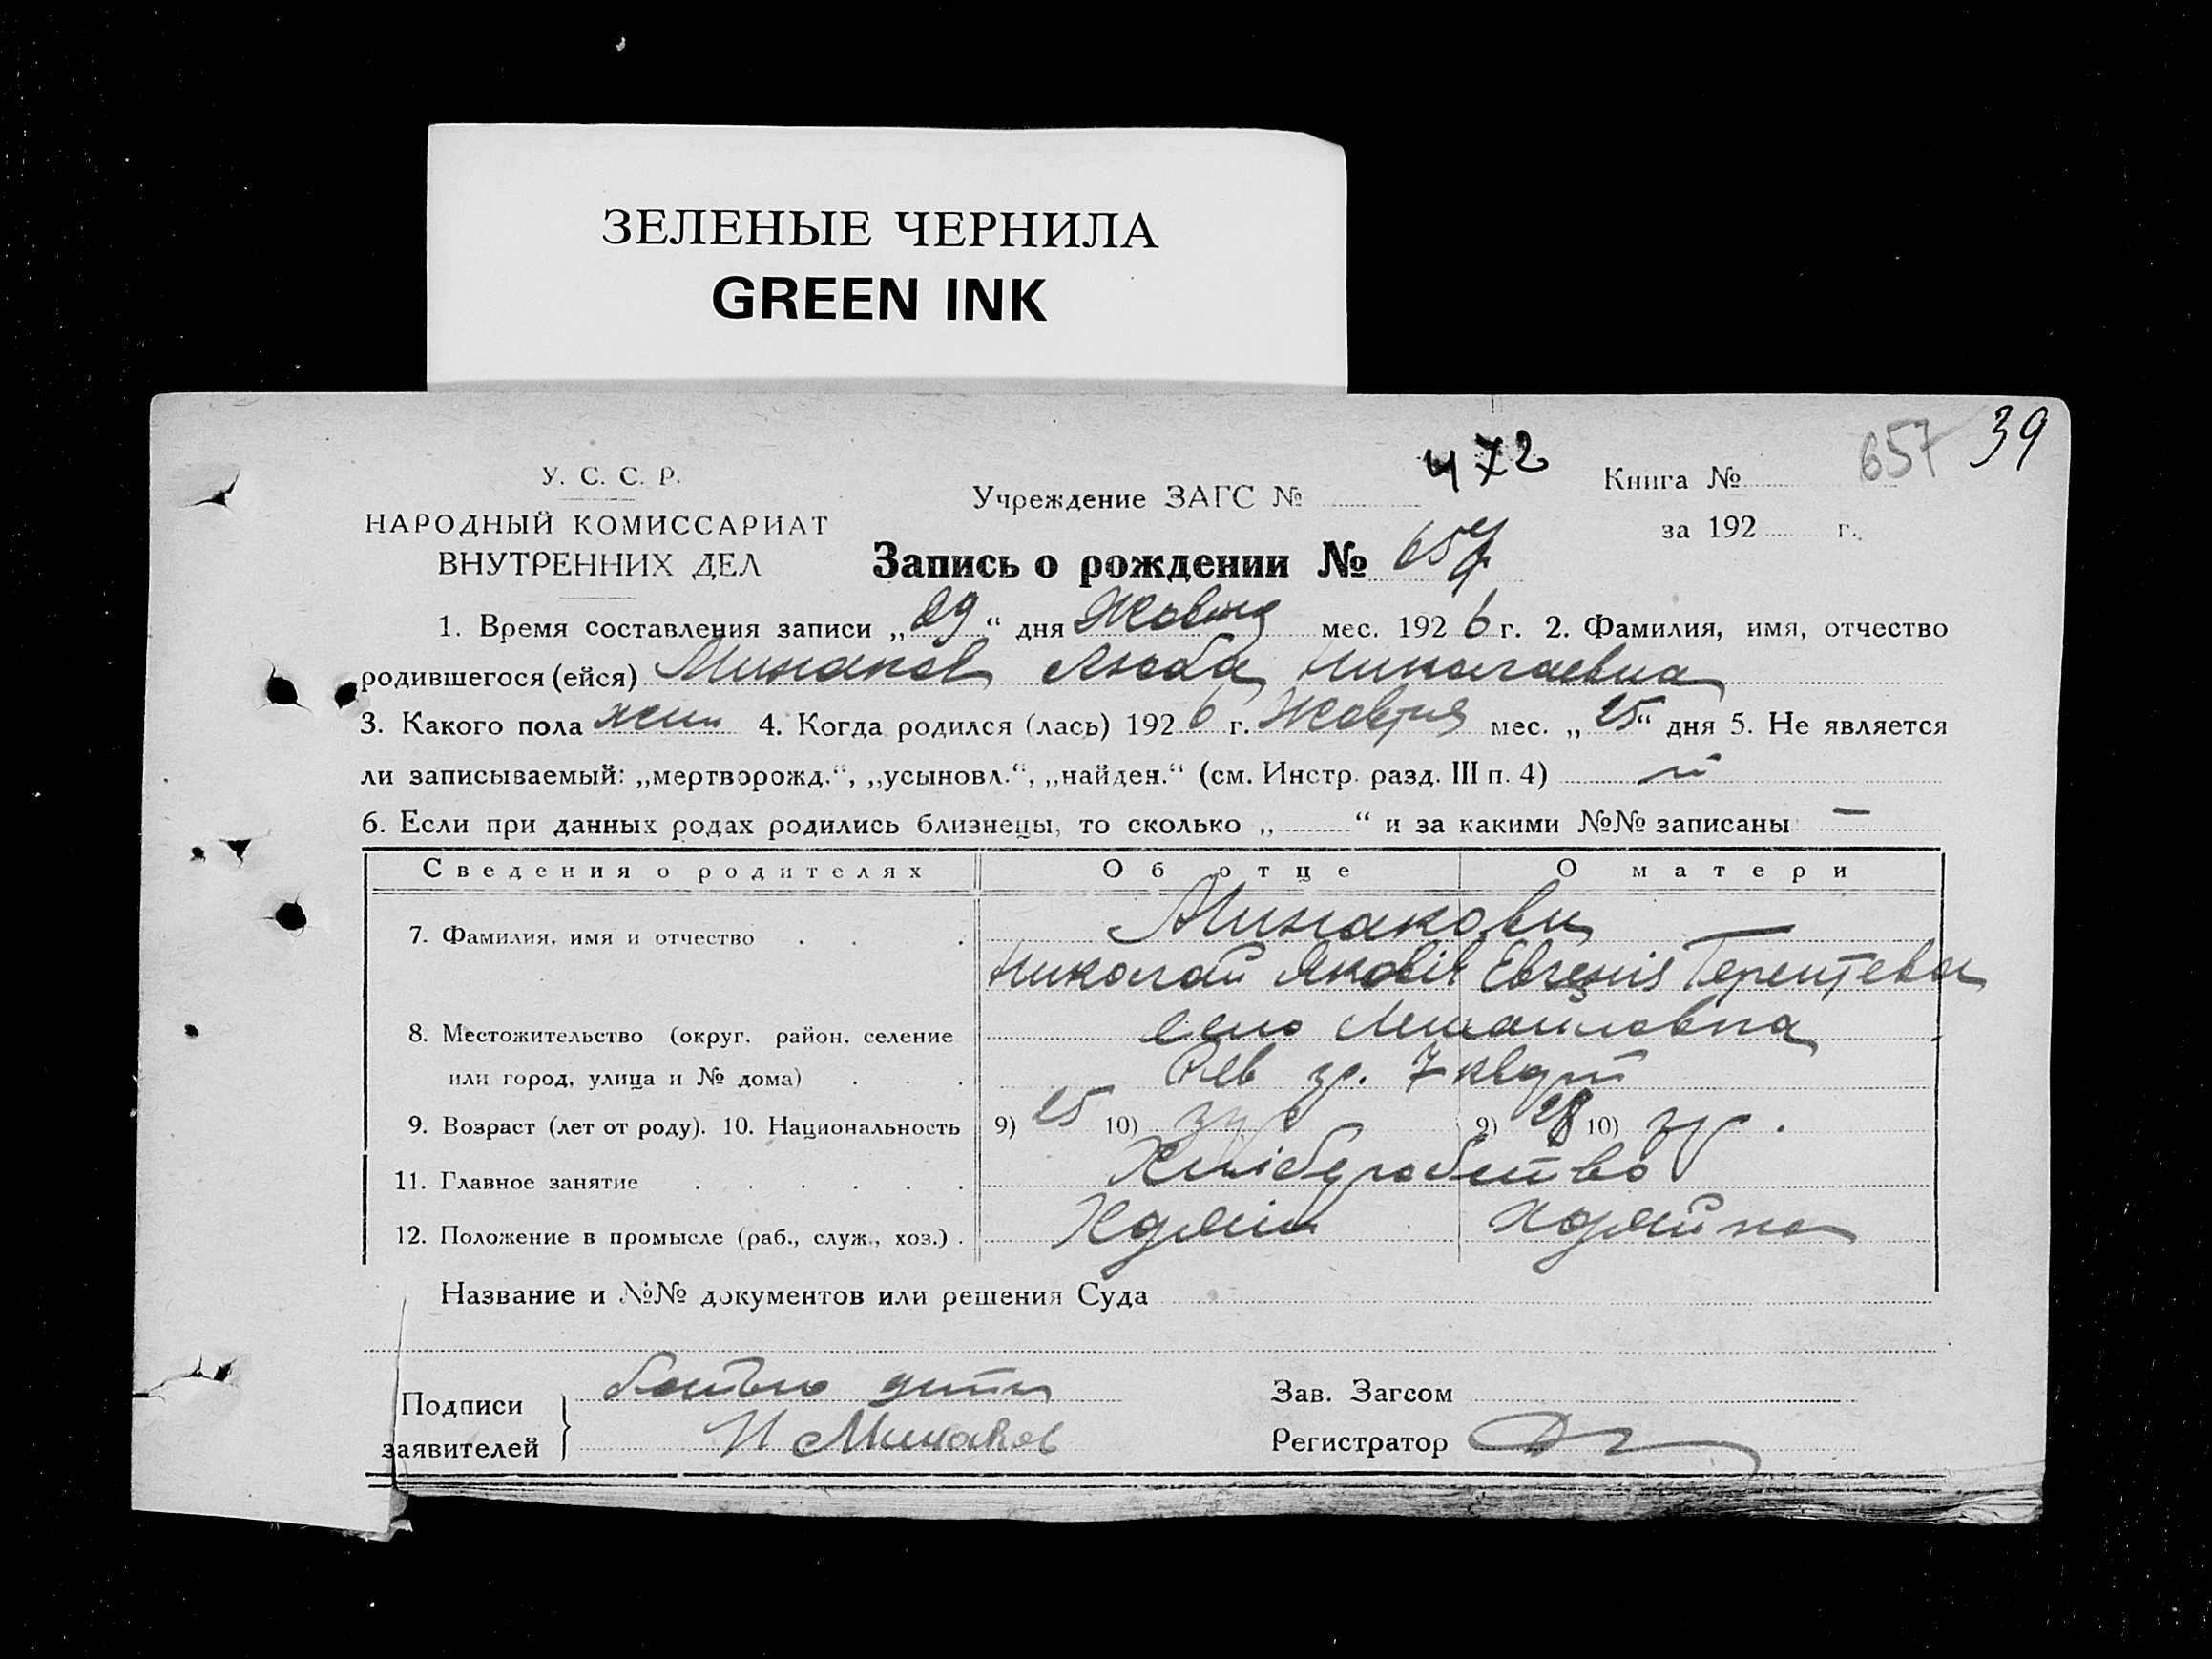 ЗЕЛЕНЫЕ ЧЕРНИЛА
GREEN INK
657 39
У. С. С. Р.
НАРОДНЫЙ КОМИССАРИАТ
ВНУТРЕННИХ ДЕЛ
Учреждение ЗАГС № 472
Книга №
за 192 г.
Запись о рождении № 657
1. Время составления записи „29“ дня Жовтня мес. 1926 г. 2. Фамилия, имя, отчество
родившегося (ейся) Минаков Люба Николаевна
3. Какого пола жен 4. Когда родился (лась) 1926 г. Жовтня мес. „25“ дня 5. Не является
ли записываемый: „мертворожд.“, „усыновл.“, „найден.“ (см. Инстр. разд. III п. 4)
6. Если при данных родах родились близнецы, то сколько „ “ и за какими №№ записаны —
Сведения о родителях Об отце О матери
7. Фамилия, имя и отчество Минакови
Николай Яковів Евгенія Терентевн
8. Местожительство (округ, район, селение село
или город, улица и № дома) 7
9. Возраст (лет от роду). 10. Национальность 9) 25 10) 9) 28 10)
11. Главное занятие Хліборобство
12. Положение в промысле (раб., служ., хоз.) Хозяїн Хозяйка
Название и №№ документов или решения Суда
Подписи
заявителей Н Минаков
Зав. Загсом
Регистратор